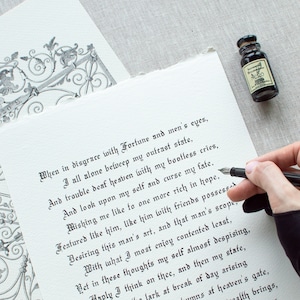 When in disgrace with Fortune and men's eyes,
I all alone beweep my outcast state,
And trouble deaf heaven with my bootless cries,
And look upon my self and curse my fate,
Wishing me like to one more rich in hope,
Featured like him, like him with friends possessed
Desiring this man's art, and that man's scope
With what I most enjoy contented least.
Yet in these thoughts my self almost despising,
Haply I think on thee, and then my state,
the lark at break of day arising
at heaven's gate,
brings,